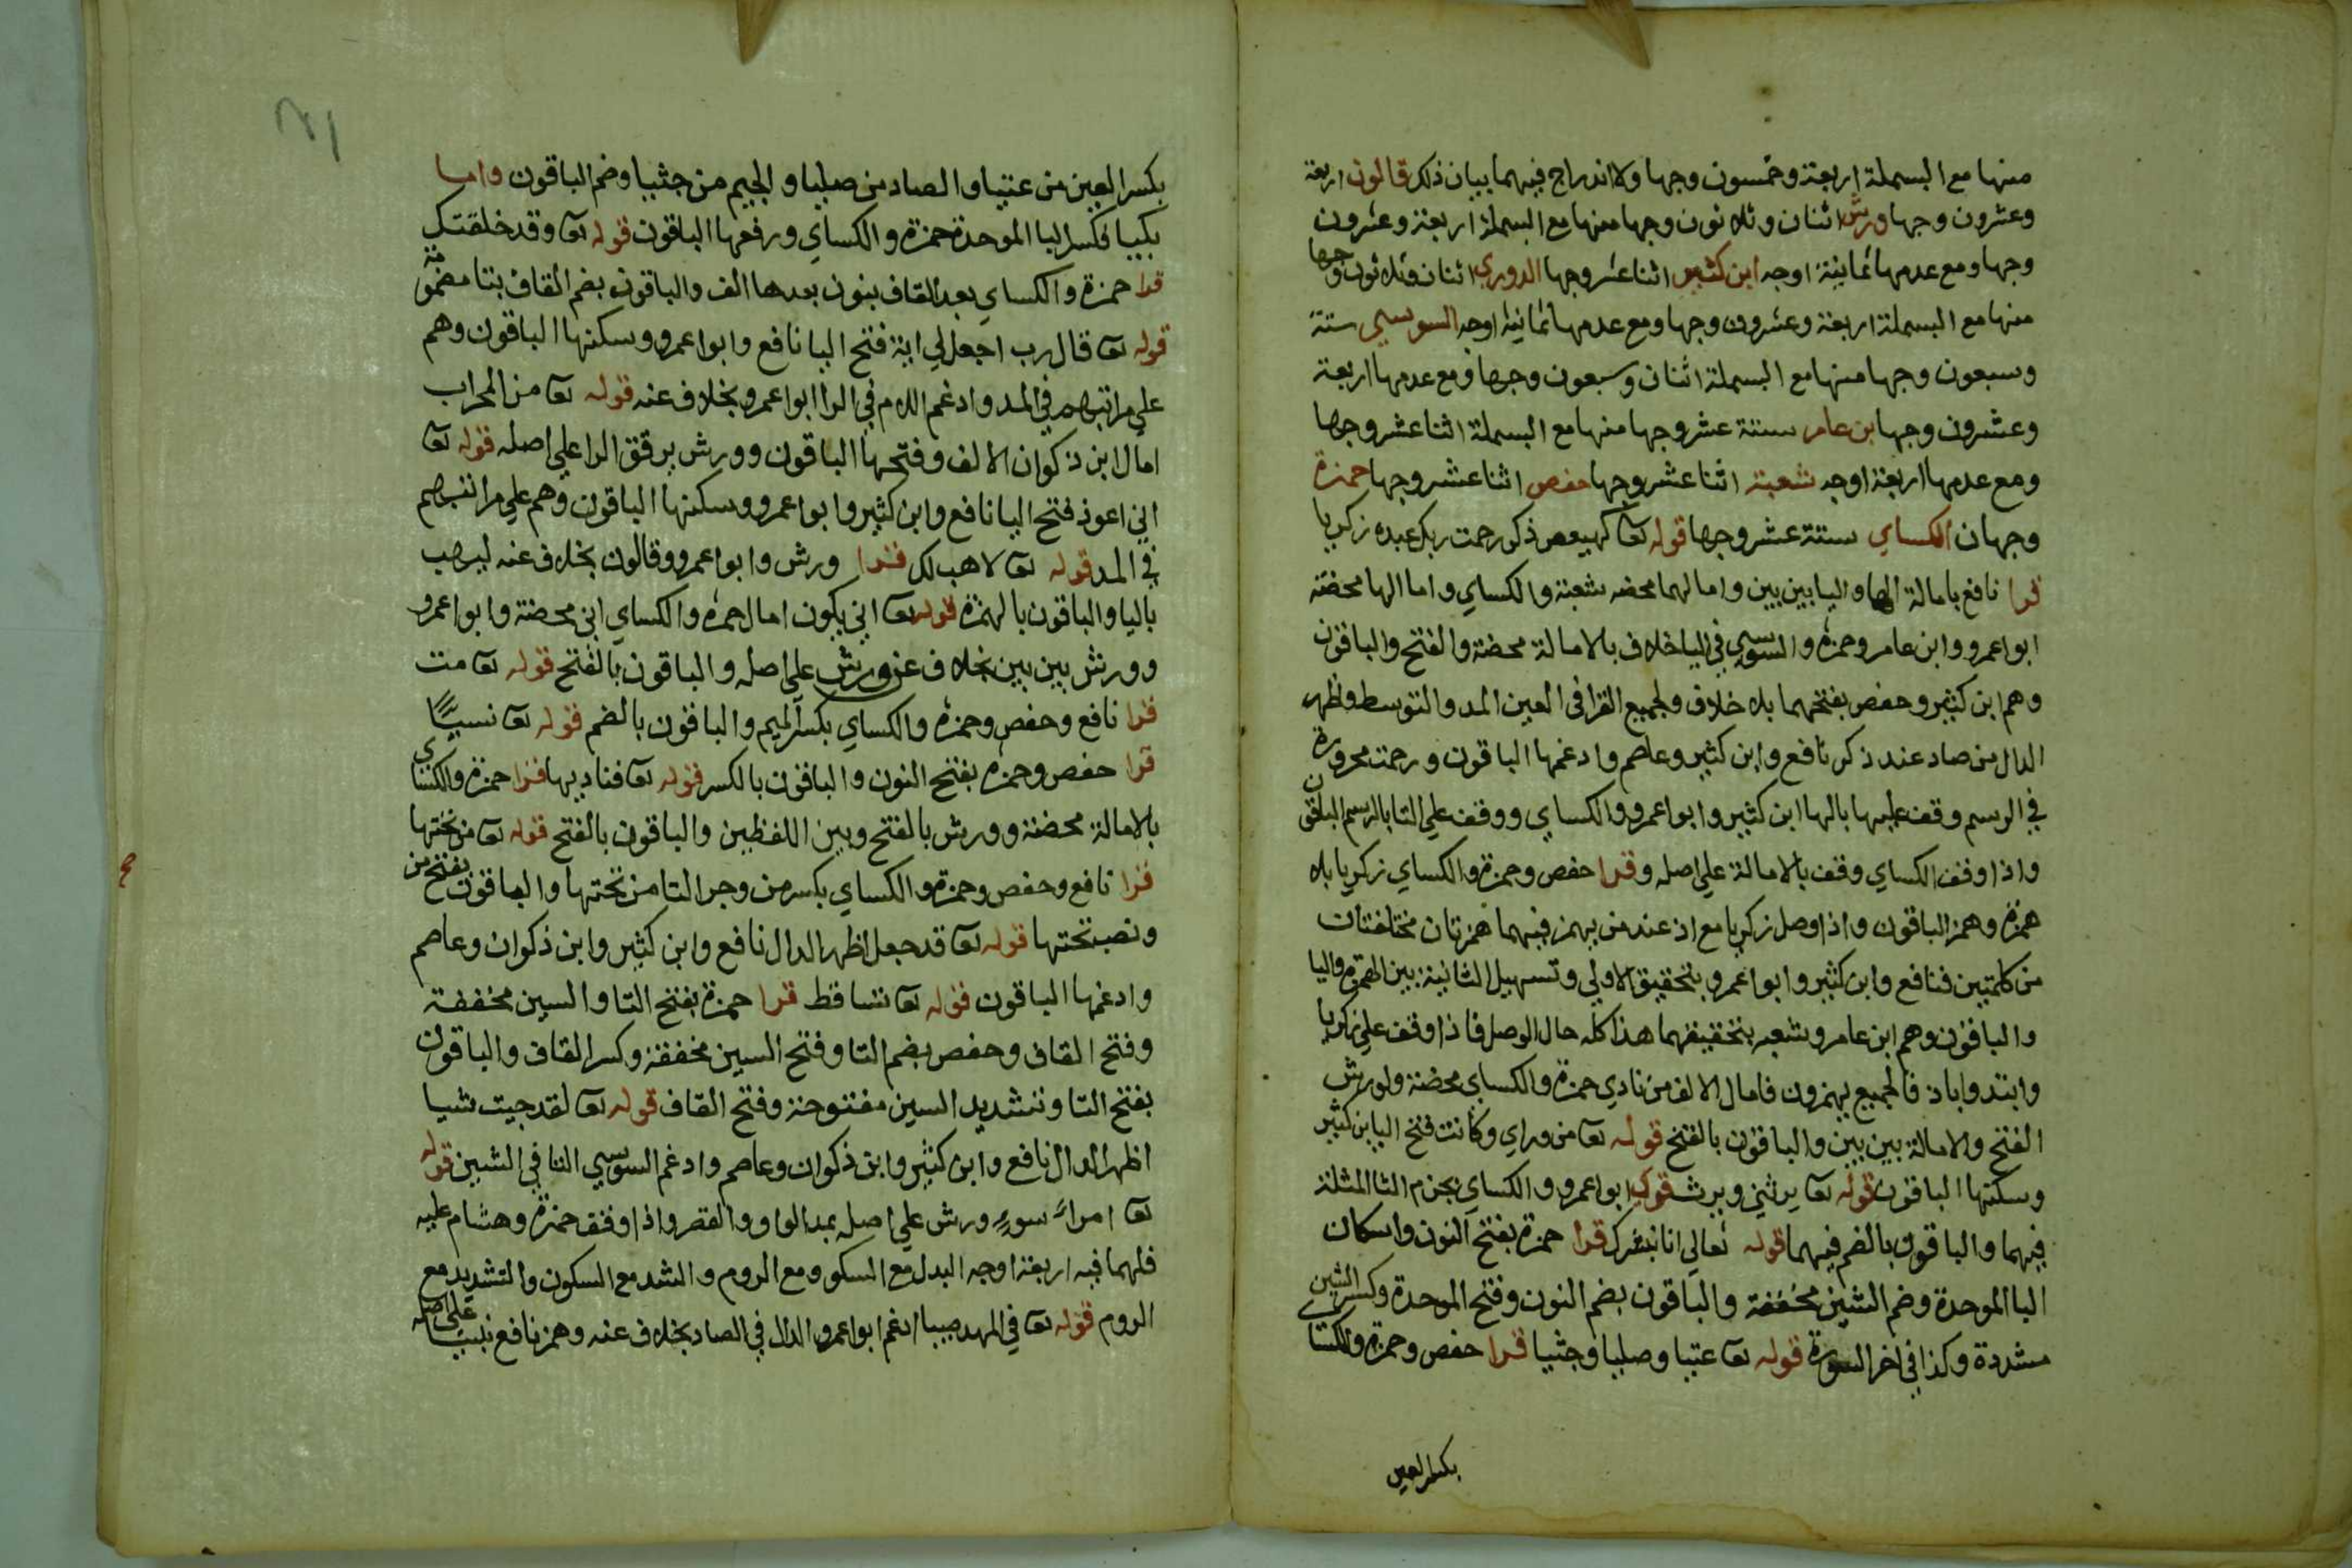 منها مع البسملة اربعة وخمسون وجها ولا اندراج فيهما بيان ذلك قالون اربعة
وعشرون وجها ورش اثنان وثلاثون وجها منها مع البسملة اربعة وعشرون
وجها ومع عدمها ثمانية اوجه ابن كثير اثنا عشر وجها الدوري اثنان وثلاثون وجها
منها مع البسملة اربعة وعشرون وجها ومع عدمها ثمانية اوجه السوسي ستة
وسبعون وجها منها مع البسملة اثنان وسبعون وجها ومع عدمها اربعة
وعشرون وجها ابن عامر ستة عشر وجها منها مع البسملة اثنا عشر وجها
ومع عدمها اربعة اوجه شعبة اثنا عشر وجها حفص اثنا عشر وجها حمزة
وجهان الكساي ستة عشر وجها قوله تعا كهيعص ذكر رحمت ربك عبده زكريا
قرا نافع بامالة الها واليا بين بين وامالهما محضه شعبة والكساي واما الها محضة
ابو اعمرو وابن عامر وحمزه والسوسي في اليا خلاف بالامالة محضة والفتح والباقون
وهم ابن كثير وحفص بفتحهما بلا خلاف ولجميع القرا في العين المد والتوسط وظهر
الدال من صاد عند ذكر نافع وابن كثير وعاصم وادغمها الباقون ورحمت مجرورة
في الرسم وقف عليها بالها ابن كثير وابو اعمرو والكساي ووقف علي التا بالرسم الباقون
واذا وقف الكساي وقف بالامالة علي اصله وقرا حفص وحمزة والكساي زكريا بلا
همزة وهمز الباقون واذا وصل زكريا مع اذ عند من يهمز فيهما همزتان مختلفتان
من كلمتين فنافع وابن كثير وابو اعمرو بتحقيق الاولي وتسهيل الثانية بين الهمزة واليا
والباقون وهم ابن عامر وشعبه بتحقيقهما هذا كله حال الوصل فاذا وقف علي زكريا
وابتدوا باذ فالجميع يهمزون فامال الالف من نادي حمزة والكساي محضة ولورش
الفتح والامالة بين بين والباقون بالفتح قوله تعا من وراي وكانت فتح اليا ابن كثير
وسكنها الباقون قوله تعا يرثني ويرث قرا ابو اعمرو والكساي بجزم الثا المثلثة
فيهما والباقون بالضم فيهما قوله تعالي انا نبشرك قرا حمزة بفتح النون واسكان
البا الموحدة وضم الشين مخففة والباقون بضم النون وفتح الموحدة وكسر الشين
مشددة وكذا في اخر السورة قوله تعا عتيا وصليا وجثيا قرا حفص وحمزة والكسا
بكسر العين
بكسر العين من عتيا والصاد من صليا والجيم من جثيا وضم الباقون واما
بكيا فكسر البا الموحدة حمزة والكساي ورفعها الباقون قوله تعا وقد خلقتك
قرا حمزة والكساي بعد القاف بنون بعدها الف والباقون بضم القاف بتا مضمومة
قوله تعا قال رب اجعل لي اية فتح اليا نافع وابو اعمرو وسكنها الباقون وهم
علي مراتبهم في المد وادغم اللام في الرا ابو اعمرو بخلاف عنه قوله تعا من المحراب
امال ابن ذكوان الالف وفتحها الباقون وورش يرقق الرا علي اصله قوله تعا
اني اعوذ فتح اليا نافع وابن كثير وابو اعمرو وسكنها الباقون وهم علي مراتبهم
في المد قوله تعا لاهب لك قرا ورش وابو اعمرو وقالون بخلاف عنه ليهب
باليا والباقون بالهمزة قوله تعا اني يكون امال حمزه والكساي اني محضة وابو اعمرو
وورش بين بين بخلاف عن ورش علي اصله والباقون بالفتح قوله تعا مت
قرا نافع وحفص وحمزه والكساي بكسر الميم والباقون بالضم قوله تعا نسيًا
قرا حفص وحمزه بفتح النون والباقون بالكسر قوله تعا فناديها قرا حمزة والكساي
بالامالة محضة وورش بالفتح وبين اللفظين والباقون بالفتح قوله تعا من تحتها
قرا نافع وحفص وحمزة والكساي بكسر من وجر التا من تحتها والباقون بفتح من
ونصب تحتها قوله تعا قد جعل اظهر الدال نافع وابن كثير وابن ذكوان وعاصم
وادغمها الباقون قوله تعا تساقط قرا حمزة بفتح التا والسين مخففة
وفتح القاف وحفص بضم التا وفتح السين مخففة وكسر القاف والباقون
بفتح التا وتشديد السين مفتوحة وفتح القاف قوله تعا لقد جيت شيا
اظهر الدال نافع وابن كثير وابن ذكوان وعاصم وادغم السوسي التا في الشين قوله
تعا امرا سوء ورش علي اصله بمد الواو والقصر واذا وقف حمزة وهشام عليه
فلهما فيه اربعة اوجه البدل مع السكو ومع الروم والشد مع السكون والتشديد مع
الروم قوله تعا في المهد صبيا ادغم ابو اعمرو الدال في الصاد بخلاف عنه وهمز نافع نبيا علي اصله